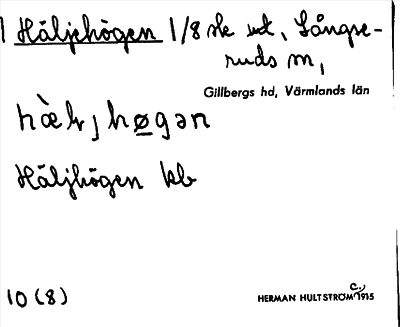 Häljehögen 1/8 sk ut, Långse-
ruds sn,
Gillbergs hd, Värmlands län
Häljhögen kb
10 (8)
HERMAN HULTSTRÖM c. 1915